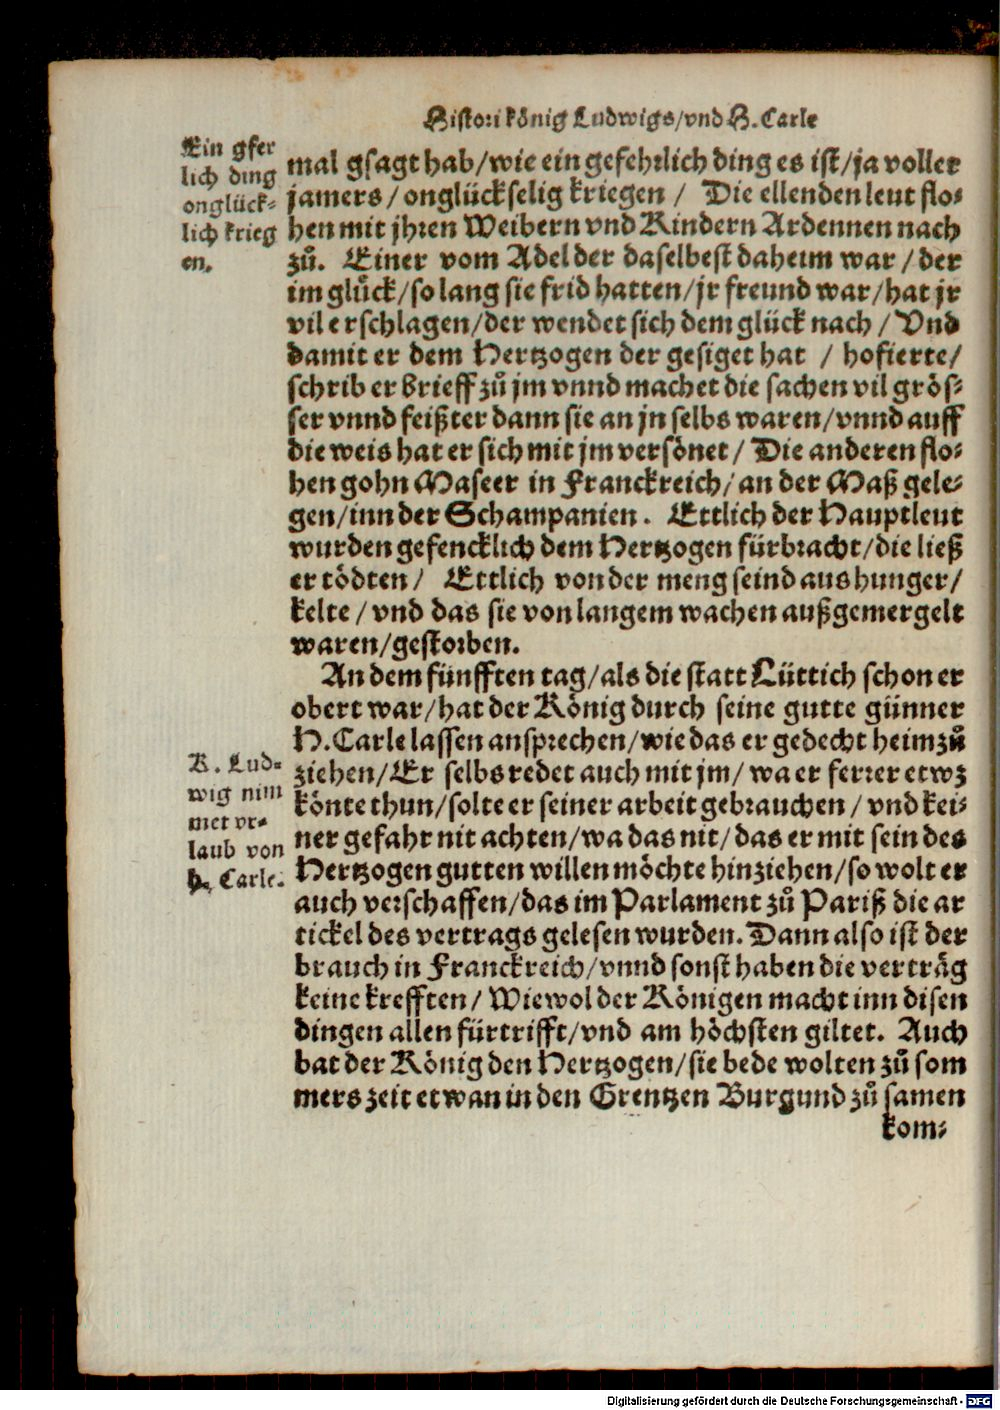 Histori könig Ludwigs/vnd H. Carle
Ein gfer
lich ding
onglück-
lich krieg
en.
mal gsagt hab/wie ein gefehrlich ding es ist/ja voller
jamers/onglückselig kriegen / Die ellenden leut flo-
hen mit jhren Weibern vnd Kindern Ardennen nach
zuͦ. Einer vom Adel der daselbest daheim war/der
im gluͤck/so lang sie frid hatten/jr freund war/hat jr
vil erschlagen/der wendet sich dem glück nach/Vnd
damit er dem Hertzogen der gesiget hat / hofierte/
schrib er brieff zuͦ jm vnnd machet die sachen vil grös-
ser vnnd feißter dann sie an jn selbs waren/vnnd auff
die weis hat er sich mit jm versönet/Die anderen flo-
hen gohn Maseer in Franckreich/an der Maß gele-
gen/inn der Schampanien. Ettlich der Hauptleut
wurden gefencklich dem Hertzogen fürbracht/die ließ
er tödten/ Ettlich von der meng seind aus hunger/
kelte/vnd das sie von langem wachen außgemergelt
waren/gestorben.
An dem fünfften tag/als die statt Lüttich schon er
obert war/hat der König durch seine gutte günner
H. Carle lassen ansprechen/wie das er gedecht heimzuͦ
ziehen/Er selbs redet auch mit jm/wa er ferrer etwz
könte thun/solte er seiner arbeit gebrauchen/vnd kei-
ner gefahr nit achten/wa das nit/das er mit sein des
Hertzogen gutten willen möchte hinziehen/so wolt er
auch verschaffen/das im Parlament zuͦ Pariß die ar
tickel des vertrags gelesen wurden. Dann also ist der
brauch in Franckreich/vnnd sonst haben die verträg
keine krefften/Wiewol der Königen macht inn disen
dingen allen fürtrifft/vnd am höchsten giltet. Auch
bat der König den Hertzogen/sie bede wolten zuͦ som
mers zeit etwan in den Grentzen Burgund zuͦ samen
kom-
K. Lud-
wig nim
met vr-
laub von
H. Carle.
Digitalisierung gefördert durch die Deutsche Forschungsgemeinschaft - DFG